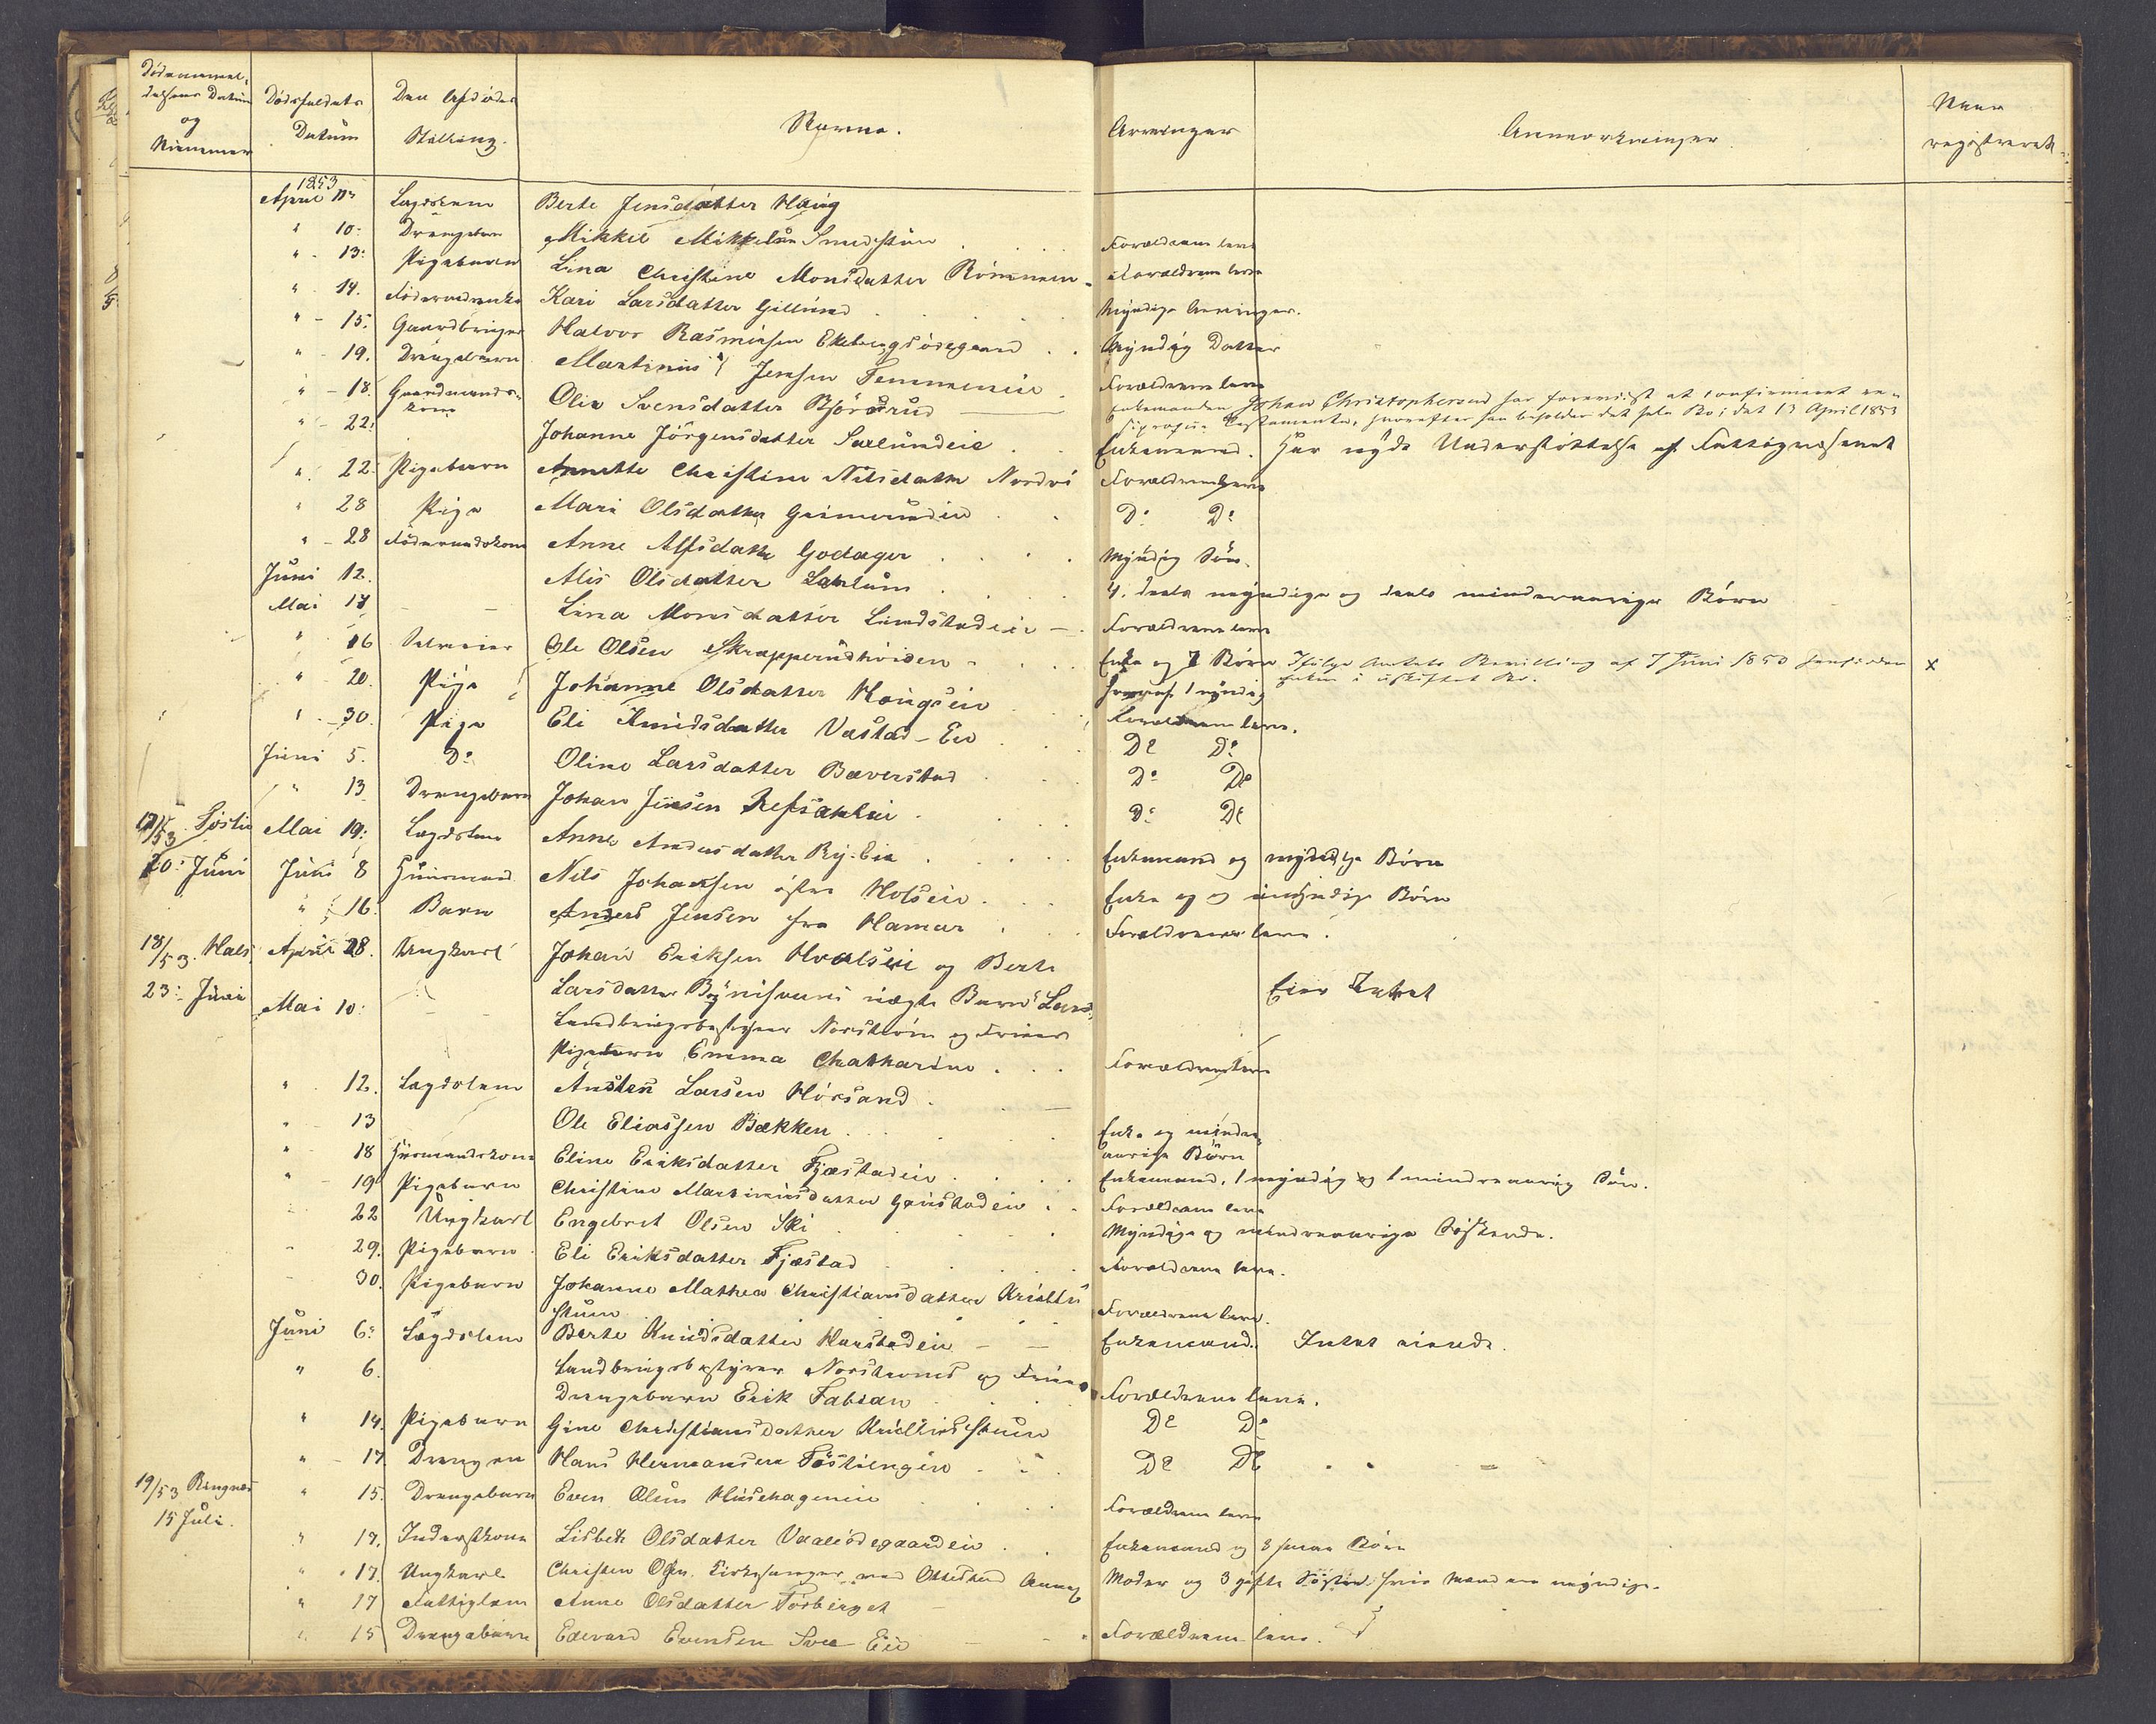 Dødsanmel-
delsens Datum
og
Nummer
Dødsfaldets
Datum
Den Afdødes
Stilling.
Navne.
Arvinger
Anmerkninger
Naar
registreret
1853
April Lægdslem Berte Jensdatter Haug
" 10: Drengebarn Mikkel Mikkelsen Smedstuen Forældrene leve
" - 13: Pigebarn Lina Christine Monsdatter Forældrene leve
" - 14. Föderaadsenke Kari Larsdatter Gillund Myndige Arvinger.
" - 15. Gaardbruger Halvor Rasmusen Ekebergsödegaard Myndig Datter
" - 19. Drengebarn Martinius Jensen Forældrene leve
" - 18. Gaardmands-
kone Olia Svensdatter Björdrud Enkemanden Johan Christophersen har foreviist et confirmeret re-
ciproqu. Testamente, hvorefter han beholder det hele Bo; dat 13 April 1853
" - 22: Johanne Jörgensdatter Enkemand. Har nydt Understöttelse af Fattigvæsenet
" 22. Pigebarn Annette Christine Nilsdatter Nordvi Forældrene leve
" 28 Pige Mari Olsdatter Grimerudeie D: D:
" - 28 Föderaadskone Anne Alfsdatter Godager Myndig Sön.
Juni 12. Alis Olsdatter 4. deels myndige og deels mindreaarige Börn
Mai 17 - - Lina Monsdatter Lundstadeie Forældrene leve
" 16 Selveier Ole Olsen Skrapperudhöiden Enke og 7 Börn Ifölge Amtets Bevilling af 7 Juni 1853 hensidder
hvoraf 1 myndig Enken i uskiftet Bo. x
" - 20. Pige Johanne Olsdatter Kongseie Forældrene leve.
" - 30. Pige Eli Knudsdatter Vestad-Eie D: D:
Juni 5. D: Oline Larsdatter Bæverstad D: D:
" 13 Drengebarn Johan Jensen Refsaleie D: D:
17/53 Töstie Mai 19: Lægdslem Anne Andersdatter Ry-Eie Enkemand og myndige Börn
20: Juni Juni 8 Huusmand Nils Johansen östre Holseie Enke og umyndige Börn
" 16: Barn Anders Jensen fra Hamar Forældrene leve.
18/53. Hals. April 28. Ungkarl Johan Eriksen Hvalseie og Berte
23: Juni Larsdatter uægte Barn Lars, Eier Intet
Mai 10: - - Landbrugsbestyrer Norström og Frues
Pigebarn Emma Chatharine Forældrene leve
" 12. Lægdslem Ansten Larsen Hörsand
" 13 Ole Eliassen Bækken Enke og mindre-
aarige Börn
" 18 Huusmandskone Eline Eriksdatter Fjæstadeie Enkemand, 1 myndig og 1 mindreaarig Sön.
" 19 Pigebarn Christine Martiniusdatter Forældrene leve
22 Ungkarl Engebret Olsen Ski Myndige og mindreaarige Söskende.
29. Pigebarn Eli Eriksdatter Fjæstad Forældrene leve.
30. Pigebarn Johanne Mathea Christiansdatter
stuen Forældrene leve.
Juni 6: Lægdslem Berte Knudsdatter Harstadeie Enkemand. Intet eiende.
" 6. Landbrugsbestyrer Norströms og Frues
Drengebarn Erik Fabian Forældrene leve.
" 14. Pigebarn Gine Christiansdatter D: D:
" - 17. Drengen Hans Hermansen Töstiengen D: D:
19/53 Ringnes " 15. Drengebarn Even Olsen Huushageneie Forældrene leve
15 Juli.
" 17. Inderstkone Lisbeth Olsdatter Vaaleödegaardeie Enkemand og 3 smaa Börn
" 17. Ungkarl Christen Olsen. Kirkesanger ved Ottestad Annex Moder og 3 gifte Söstre hvis Mænd ere myndige.
" 17 Fattiglem Anne Olsdatter Torberget
" 15 Drengebarn Edevard Evensen Eie Forældrene leve.